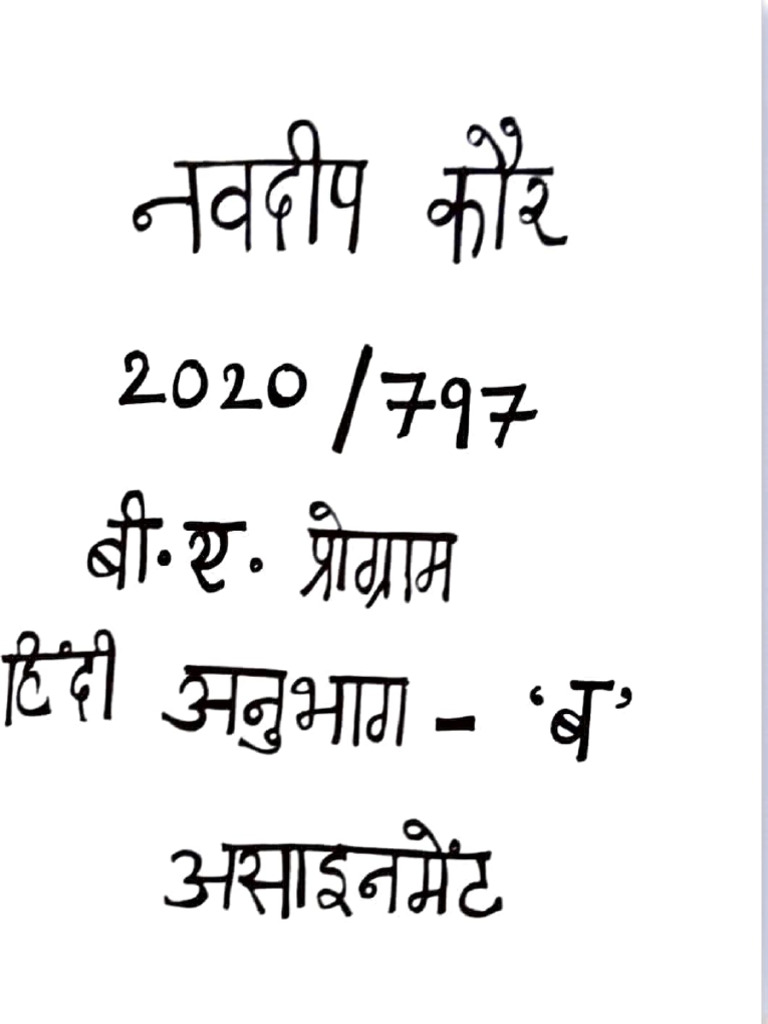 नवदीप कौर
2020/797
बी.ए. प्रोग्राम
हिंदी अनुभाग - ‘ब’
असाइनमेंट